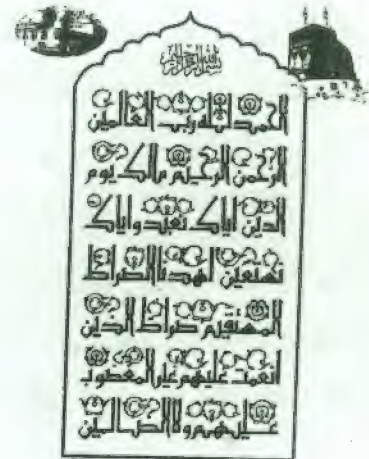 بسم الله الرحمن الرحيم
الحمد لله رب العالمين
الرحمن الرحيم مالك يوم
الدين اياك نعبد و اياك
نستعين اهدنا الصراط
المستقيم صراط الذين
انعمت عليهم غير المغضوب
عليهم ولا الضالين